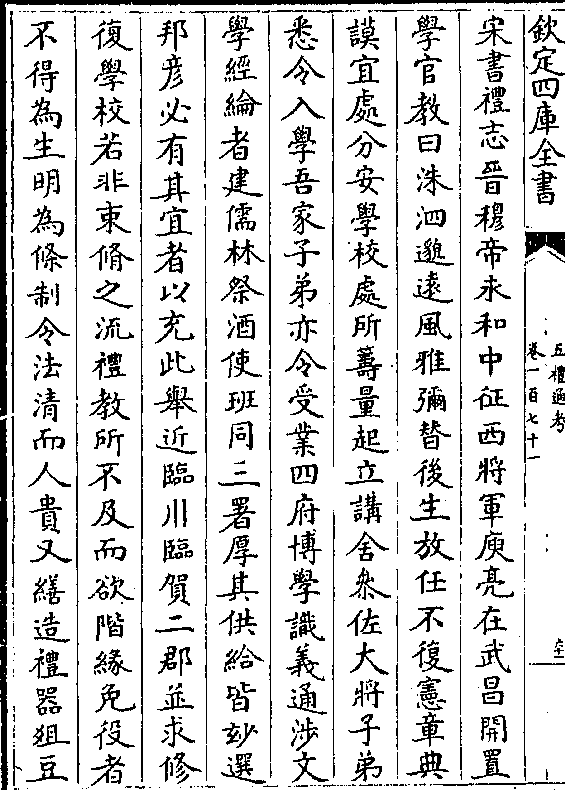 欽定四庫全書
五禮通考
卷一百七十一
宋書禮志晉穆帝永和中征西將軍庾亮在武昌開置
學官教曰洙泗邈遠風雅彌替後生放任不復憲章典
謨宜處分安學校處所籌量起立講舍叅佐大將子弟
悉令入學吾家子弟亦令受業四府博學識義通涉文
學經綸者建儒林祭酒使班同三署厚其供給皆妙選
邦彦必有其宜者以充此舉近臨川臨賀二郡並求修
復學校若非束脩之流禮教所不及而欲階緣免役者
不得為生明為條制令法清而人貴又繕造禮器俎豆